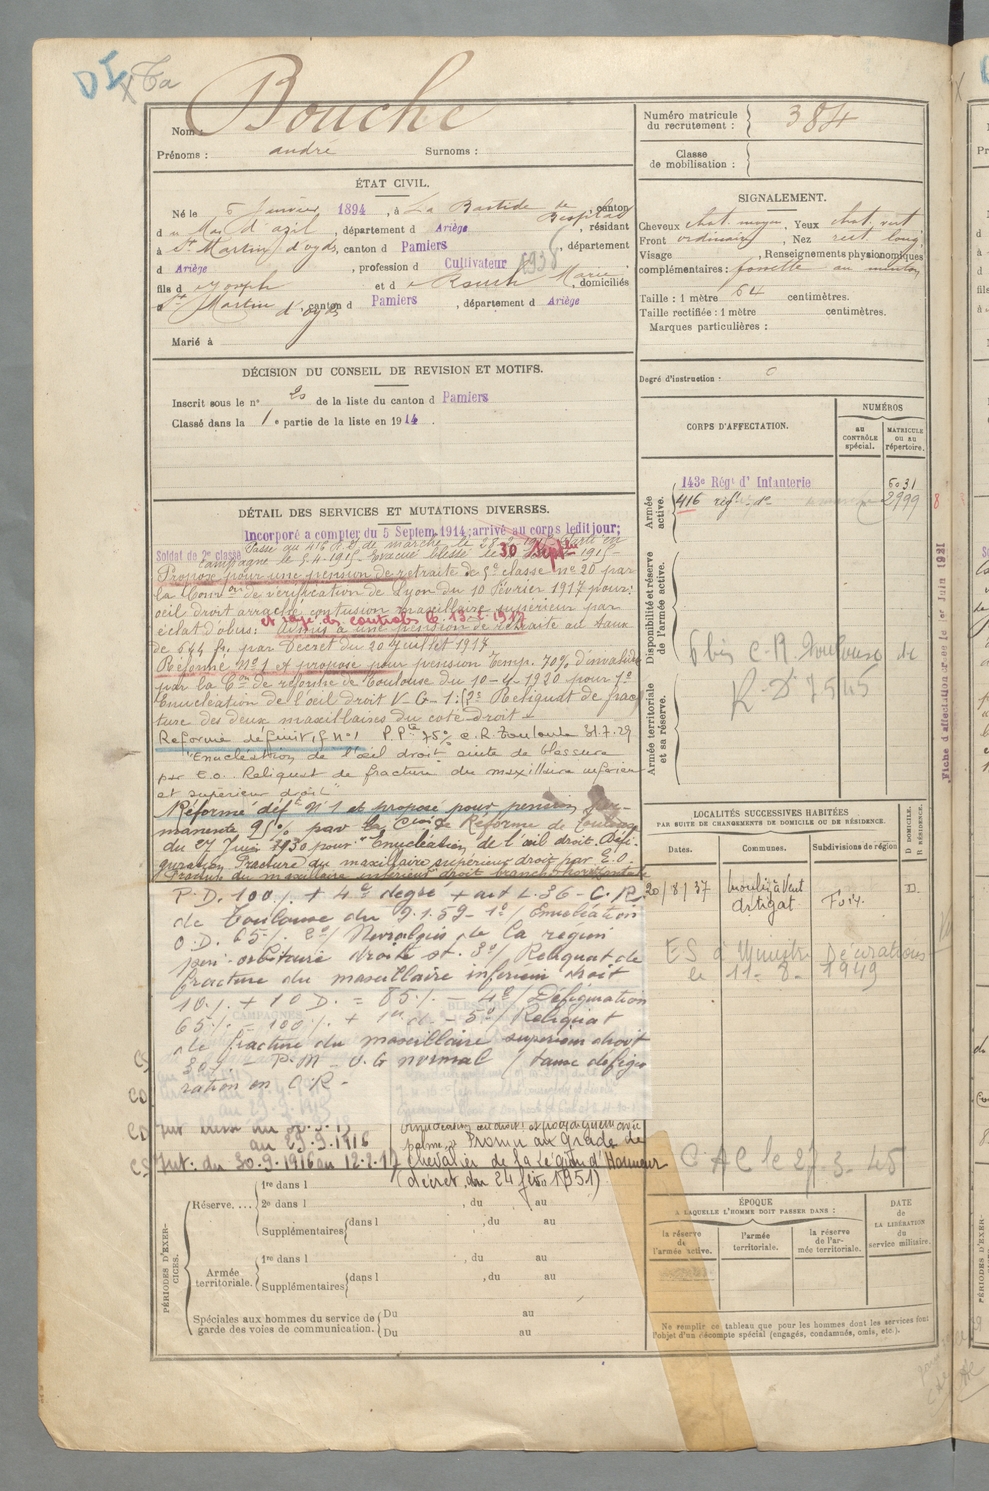 DI
Bouche
Nom :
Prénoms : andré Surnoms :
ÉTAT CIVIL.
Né le 5 Janvier 1894 , à La Bastide de Besplas, canton
du Mas d'azil, département d Ariège, résidant
à St Martin d'oydes, canton d Pamiers, département
d Ariège, profession d Cultivateur
fils d Joseph et d Rouch Marie, domiciliés
à St Martin d'oydes, canton d Pamiers, département d Ariège
Marié à
DÉCISION DU CONSEIL DE REVISION ET MOTIFS.
Inscrit sous le n° 20 de la liste du canton d Pamiers
Classé dans la 1e partie de la liste en 1914.
DÉTAIL DES SERVICES ET MUTATIONS DIVERSES.
Incorporé a compter du 5 Septem. 1914; arrivé au corps ledit jour;
Soldat de 2e classe
Passé au 416 R.I. de marche le
campagne le 5-4-1915 - Evacué blessé le 30 Septbre 1915 -
Proposé pour une pension de retraite de 5e classe n° 20 par
la Comon de vérification de Lyon du 10 février 1917 pour:
oeil droit arraché contusion maxillaire supérieur par
éclat d'obus:
et rayé des controles le 13-2-1917
Admis à une pension de retraite au taux
de 644 fr. par Décret du 20 Juillet 1917
Réformé N° 1 et proposé pour pension Temp. 70% d'invalidité
par la Con de réforme de Toulouse du 10-4-1920 pour 1°
Enucléation de l'oeil droit V.G = 1: 2° Reliquat de frac
ture des deux maxillaires du coté droit
Réformé définitif n° 1 P.Pte 75% C.R. Toulouse 31.7.29
"Enucléation de l'œil droit suite de blessure
par E.O. Reliquat de fracture du maxillaire inférieur
et supérieur droit"
Réformé déft N° 1 et proposé pour pension per-
manente 95% par la Con de Réforme de Toulouse
du 27 Juin 1930 pour: "Enucléation de l'œil droit. Défi-
guration Fracture du maxillaire supérieur droit par E.O.
Fracture du maxillaire inférieur droit branche horizontale
P.D. 100% + 4e degré + art L.36 - C.R.
de Toulouse du 9.1.59 - 1°/ Enucléation
O.D. 65% 2°/ Nevralgies de la region
peri-orbitaire droite st. 3°/ Reliquat de
fracture du maxillaire inférieur droit
10% + 10 D. = 85% - 4°/ Défiguration
65% = 100% + - 5°/ Reliquat
de fracture du maxillaire supérieur droit
30% - P.M = O.G normal (sauf défigu
ration en C.R -
CAMPAGNES
BLESSURES
CS
CD
CD
CS
au 29.9.1916
Int: du 30.9.1916 au 12.2.17
palme. Promu au grade de
chevalier de la Légion d'Honneur
(décret du 24 fév 1951)
PÉRIODES D'EXERCICES.
Réserve....
1re dans l , du au
2e dans l , du au
Supplémentaires dans l , du au
Armée territoriale.
1re dans l , du au
Supplémentaires dans l , du au
Spéciales aux hommes du service de garde des voies de communication.
Du au
Du au
Numéro matricule du recrutement : 384
Classe de mobilisation :
SIGNALEMENT.
Cheveux chat. moyen, Yeux chat. vert
Front ordinaire, Nez rect. long
Visage , Renseignements physionomiques
complémentaires : fossette au menton
Taille : 1 mètre 64 centimètres.
Taille rectifiée : 1 mètre centimètres.
Marques particulières :
Degré d'instruction :
CORPS D'AFFECTATION.
NUMÉROS
AU CONTRÔLE spécial.
MATRICULE OU AU répertoire.
Armée active.
143e Régt d' Infanterie 5031
416 régt do 2999
Disponibilité et réserve de l'armée active.
6 bis C.R. Toulouse
R.D 7545
Armée territoriale et sa réserve.
LOCALITÉS SUCCESSIVES HABITÉES
PAR SUITE DE CHANGEMENTS DE DOMICILE OU DE RÉSIDENCE.
Dates. Communes. Subdivisions de région
D. DOMICILE. R. RÉSIDENCE.
20/8/37 Moulin à Vent Artigat Foix D.
ES à Ministre Décorations
le 11-8-1949
C A C le 27.3.45
ÉPOQUE
A LAQUELLE L'HOMME DOIT PASSER DANS :
la réserve de l'armée active.
l'armée territoriale.
la réserve de l'armée territoriale.
DATE de LA LIBÉRATION du service militaire.
Ne remplir ce tableau que pour les hommes dont les services font
l'objet d'un décompte spécial (engagés, condamnés, omis, etc.).
Fiche d'affectation le 1er Juin 1921